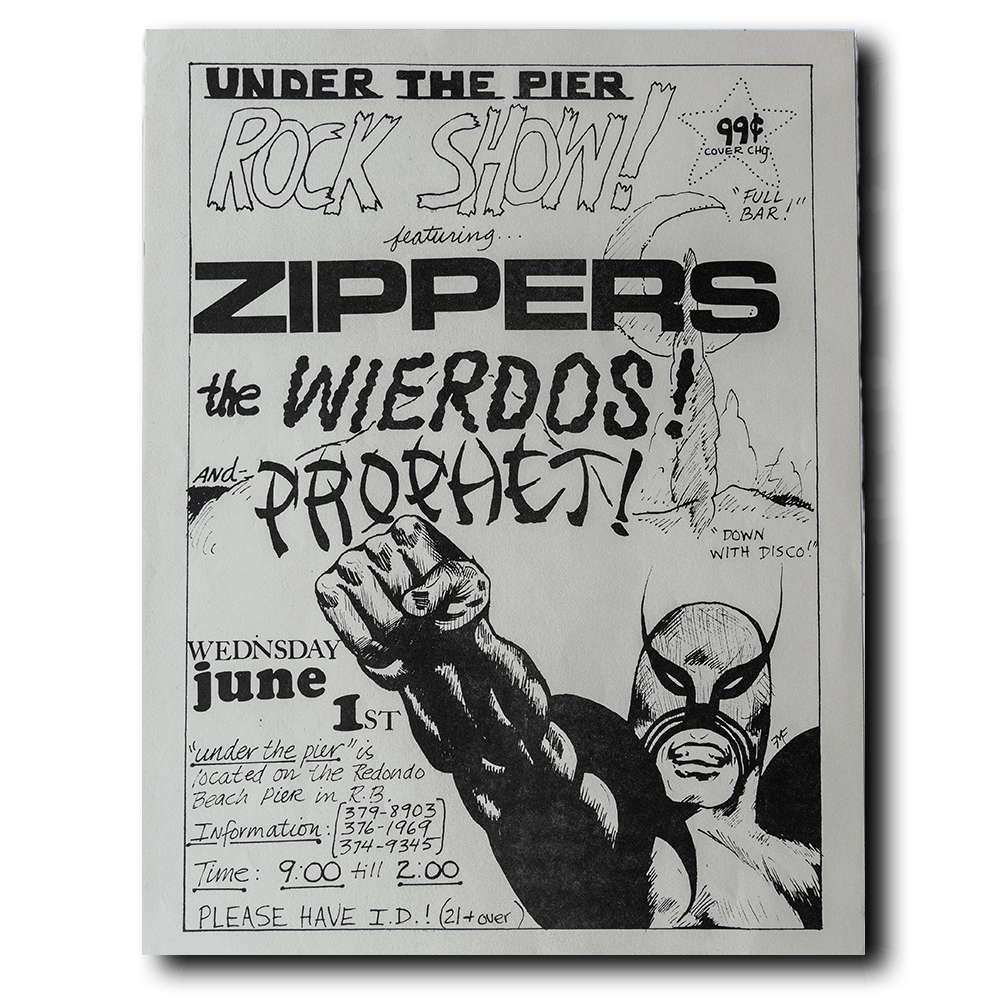 UNDER THE PIER
ROCK SHOW!
99¢
COVER CHG.
"FULL
BAR!"
featuring...
ZIPPERS
the WIERDOS!
AND- PROPHET!
"DOWN
WITH DISCO!"
WEDNSDAY
june
1ST
"under the pier" is
located on the Redondo
Beach Pier in R.B.
Information: [379-8903
376-1969
374-9345]
Time: 9:00 till 2:00
PLEASE HAVE I.D.! (21+over)